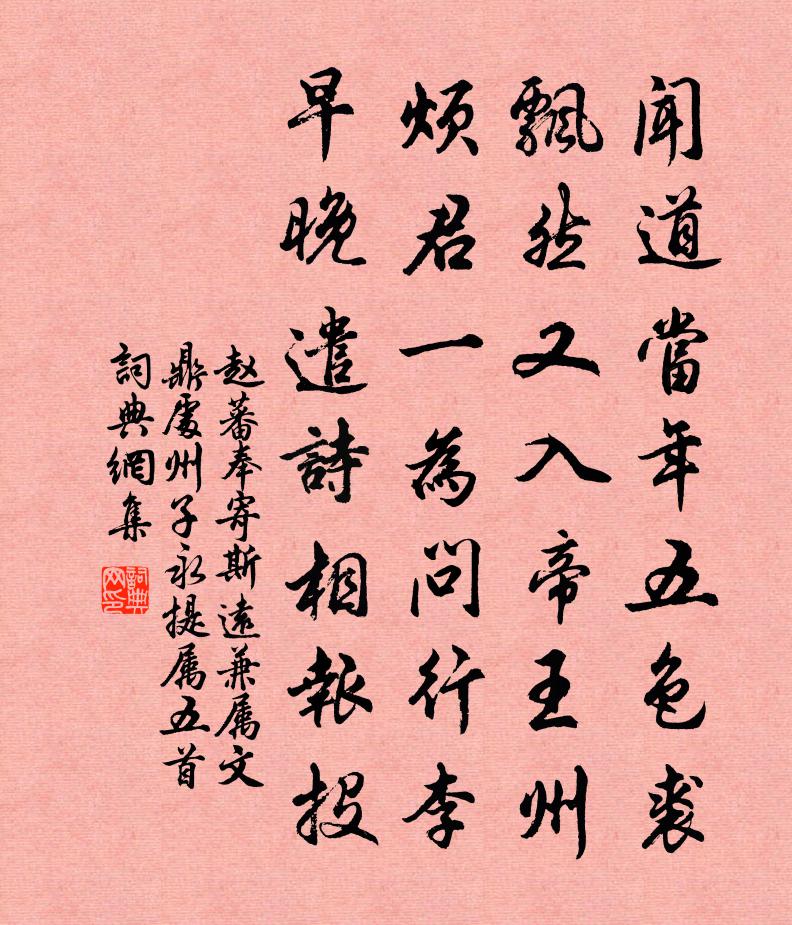 聞道當年五色裘
飄然又入帝王州
煩君一為問行李
早晚遣詩相報投
赵蕃奉寄斯遠兼属文
鼎處州子永提属五首
詞典網集
詞典網印